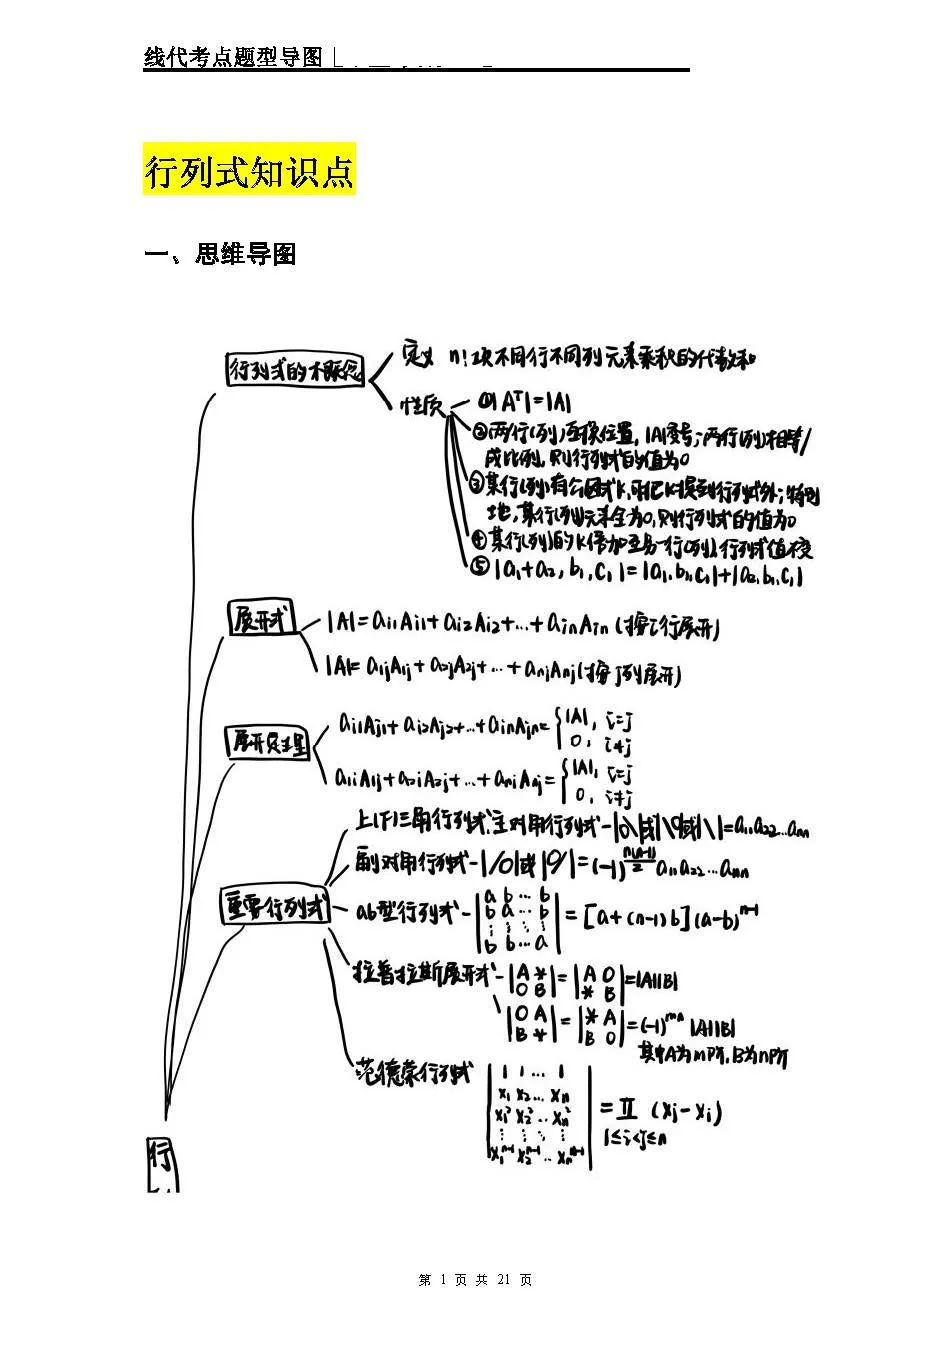 线代考点题型导图
行列式知识点
一、思维导图
行列式的概念
定义 n!项不同行不同列元素乘积的代数和
性质
①|Aᵀ|=|A|
②两行(列)互换位置，|A|变号；两行(列)相等/
成比例，则行列式的值为0
③某行(列)有公因式k，可把k提到行列式外；特别
地，某行(列)元素全为0，则行列式的值为0
④某行(列)的k倍加至另一行(列)，行列式值不变
⑤|a₁+a₂, b₁, c₁|=|a₁, b₁, c₁|+|a₂, b₁, c₁|
展开式
|A|=aᵢ₁Aᵢ₁+aᵢ₂Aᵢ₂+…+aᵢₙAᵢₙ(按i行展开)
|A|=a₁ⱼA₁ⱼ+a₂ⱼA₂ⱼ+…+aₙⱼAₙⱼ(按j列展开)
展开定理
aᵢ₁Aⱼ₁+aᵢ₂Aⱼ₂+…+aᵢₙAⱼₙ={|A|, i=j
0, i≠j
a₁ᵢA₁ⱼ+a₂ᵢA₂ⱼ+…+aₙᵢAₙⱼ={|A|, i=j
0, i≠j
重要行列式
上(下)三角行列式,主对角行列式-|0\|或|\0|或|\|=a₁₁a₂₂…aₙₙ
副对角行列式-|/0|或|0/|=(-1)^(n(n-1)/2) a₁₁a₂₂…aₙₙ
ab型行列式-
|a b … b|
|b a … b|
|⋮ ⋮ ⋮ ⋮|
|b b … a|
=[a+(n-1)b](a-b)ⁿ⁻¹
拉普拉斯展开式-|A *|=|A 0|=|A||B|
|0 B| |* B|
|0 A|=|* A|=(-1)ᵐⁿ|A||B|
|B *| |B 0|
其中A为m阶,B为n阶
范德蒙行列式
|1 1 … 1|
|x₁ x₂ … xₙ|
|x₁² x₂² … xₙ²|
|⋮ ⋮ ⋮ ⋮|
|x₁ⁿ⁻¹ x₂ⁿ⁻¹ … xₙⁿ⁻¹|
=Π (xⱼ-xᵢ)
1≤i<j≤n
行
第 1 页 共 21 页